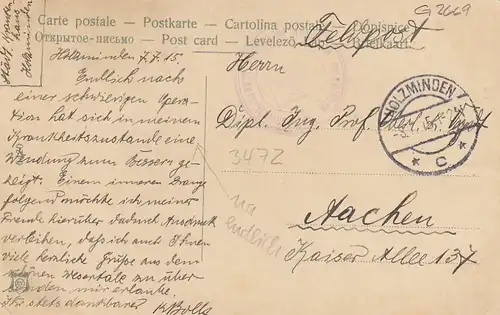 G 2669
Carte postale – Postkarte – Cartolina postale – Dopisnice
Открытое-письмо – Post card – Levelező
Feldpost
Städt. 
Holzminden
Holzminden 7.7.15.
Endlich nach
einer schwierigen Opera-
tion hat sich in meinem
Krankheitszustande eine
Wendung zum Bessern ge-
zeigt. Einem inneren Drange
folgend möchte ich meiner
Freude hierüber dadurch Ausdruck
verleihen, daß ich auch Ihnen
viele herzliche Grüße aus dem
schönen Wesertale zu über-
senden mir erlaube.
Ihr stets dankbarer
Herrn
Dipl. Ing. Prof.
Aachen
Kaiser Allee 137
3472
na endlich
HOLZMINDEN
* c *